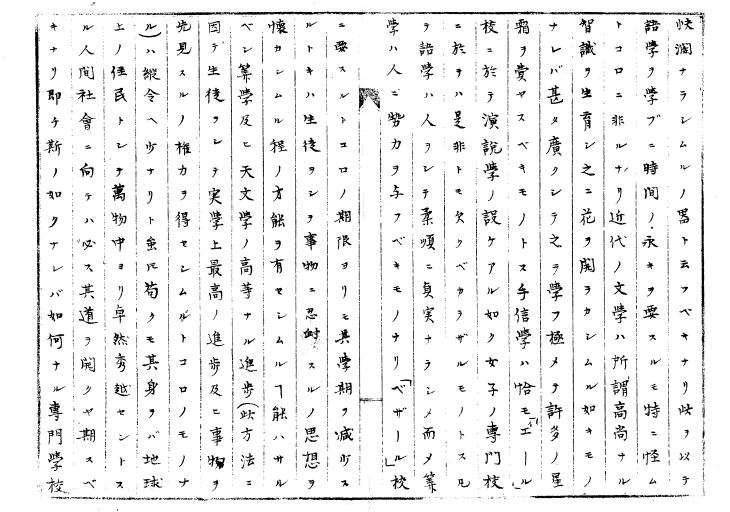 快濶ナラシムルノ器ト云フベキナリ此ヲ以テ
語學ヲ學ブニ時間ノ永キヲ要スルモ特ニ怪ム
トコロニ非ルナリ近代ノ文學ハ所謂高尚ナル
智識ヲ生育シ之ニ花ヲ開ラカシムル如キモノ
ナレバ甚タ廣クシテ之ヲ學フ極メテ許多ノ星
霜ヲ費ヤスベキモノトス手信學ハ恰モ「エール」
校ニ於テ演説學ノ設ケアル如ク女子ノ專門校
ニ於テハ是非トモ欠クベカラザルモノトス凡
ヲ語學ハ人ヲシテ柔順ニ真実ナラシメ而メ筭
學ハ人ニ勢力ヲ与フベキモノナリ「ベザール」校
ニ要スルトコロノ期限ヨリモ其學期ヲ減少ス
ルトキハ生徒ヲシテ事物ニ忍耐スルノ思想ヲ
懷カシムル程ノ才能ヲ有セシムルヿ能ハサル
ベシ筭學及ヒ天文學ノ高等ナル進歩(此方法ニ
因テ生徒ヲシテ実學上最高ノ進歩及ヒ事物ヲ
先見スルノ権力ヲ得セシムルトコロノモノナ
ル)ハ縱令ヘ少ナリト雖㆑苟クモ其身ヲバ地球
上ノ住民トシテ萬物中ヨリ卓然秀越セントス
ル人間社會ニ向テハ必ス其道ヲ開クヤ期スベ
キナリ即チ斯ノ如クナレバ如何ナル專門學校